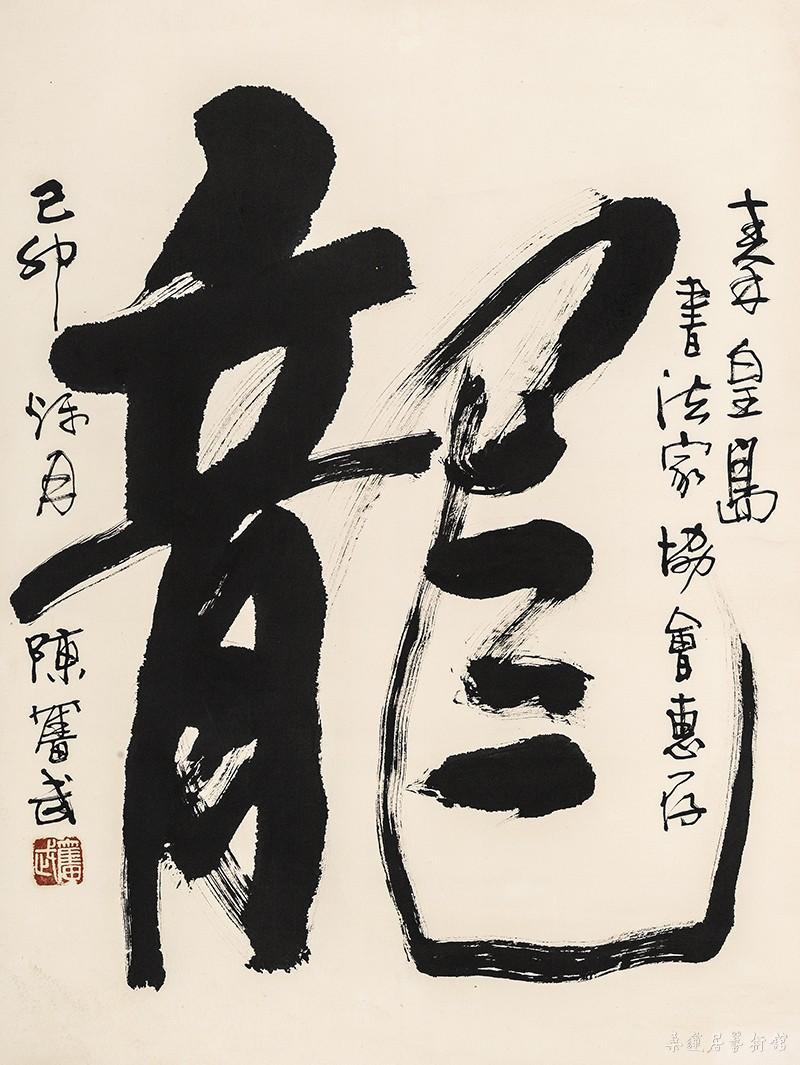 秦皇島
書法家協會惠存
龍
己卯秌月
陳奮武
奮武
桑蓮居藝術館